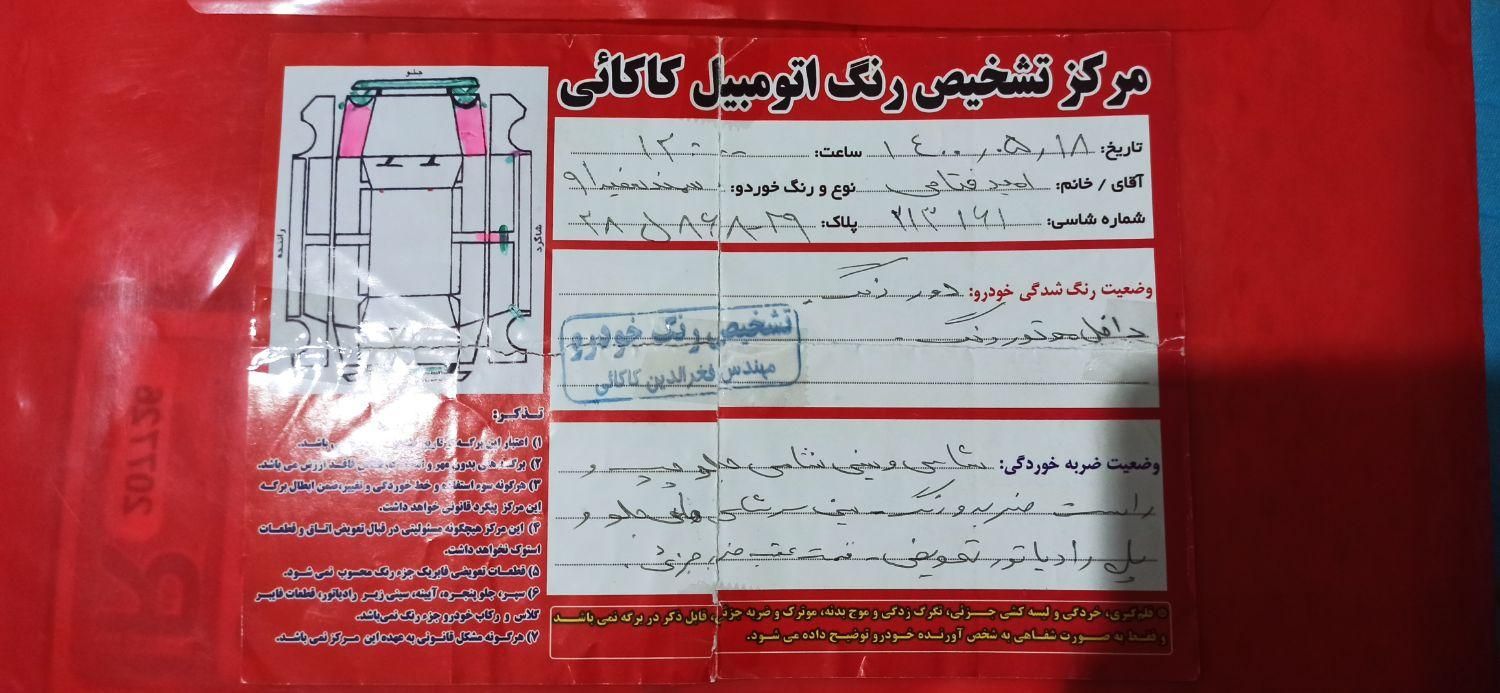 مرکز تشخیص رنگ اتومبیل کاکائی
تاریخ: ۱۴۰۰/۰۵/۱۸ ساعت: ۱۲:۰۰
آقای / خانم: امید فتاحی نوع و رنگ خوردو: سمند سفید
شماره شاسی: ۲۱۳۱۶۱ پلاک:
وضعیت رنگ شدگی خودرو: دور رنگ
داخل موتور رنگ.
تشخیص رنگ خودرو
مهندس فخرالدین کاکائی
وضعیت ضربه خوردگی: شاسی و سینی شاسی جلو چپ و
راست ضربه و رنگ - سرشاسی های جلو و
پل رادیاتور تعویض - قسمت عقب ضربه جزئی.
جلو
راننده
شاگرد
تذکر:
۱) اعتبار این برگه باشد.
۲) برگه های بدون مهر و فاقد ارزش می باشد.
۳) هرگونه سوء استفاده و خط خوردگی و تغییر، ضمن ابطال برگه
این مرکز پیگرد قانونی خواهد داشت.
۴) این مرکز هیچگونه مسئولیتی در قبال تعویض اتاق و قطعات
استوک نخواهد داشت.
۵) قطعات تعویضی فابریک جزء رنگ محسوب نمی شود.
۶) سپر، جلو پنجره، آیینه، سینی زیر رادیاتور، قطعات فایبر
گلاس و رکاب خودرو جزء رنگ نمی‌باشد.
۷) هرگونه مشکل قانونی به عهده این مرکز نمی باشد.
قلم‌گیری، خردگی و لیسه کشی جزئی، تگرگ زدگی و موج بدنه، موترک و ضربه جزئی، قابل ذکر در برگه نمی باشد
و فقط به صورت شفاهی به شخص آورنده خودرو توضیح داده می شود.
207726